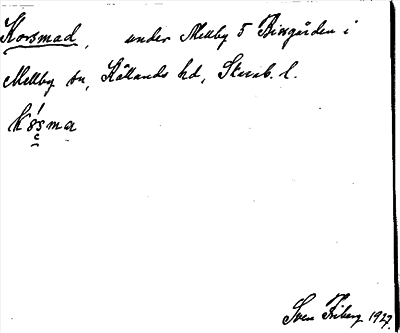 Korsmad, under Mellby 5 Bingården i
Mellby sn, Kållands hd, Skarab. l.
Sven Friberg 1927.